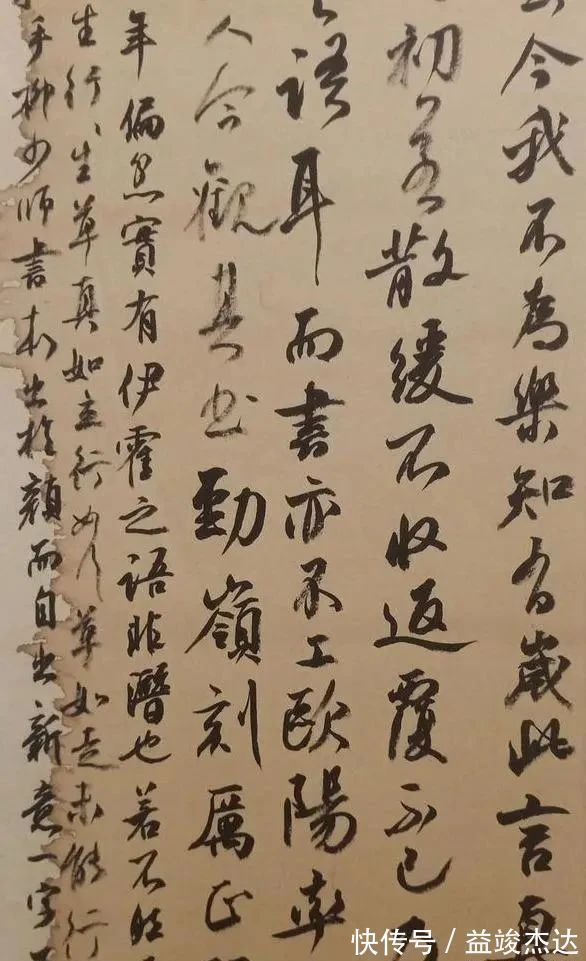 今我不為樂知有歲此言真
初若散緩不收返覆不已乃
語耳而書亦不工歐陽率
人今觀其書勁嶺刻厲正
年偏忿實有伊霍之語非譖也若不然
生行、生草真如立行如行草如走未能行
手柳少師書本出於顏而自出新意一字
快传号 / 益竣杰达